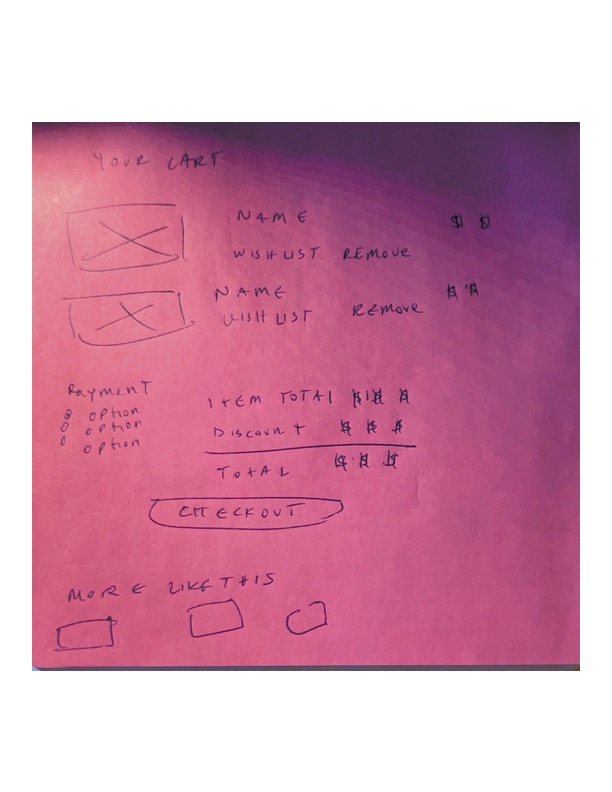 YOUR CART
NAME $ $
WISHLIST REMOVE
NAME $ $
WISHLIST REMOVE
Payment
option
option
option
ITEM TOTAL $ $ $ $
DISCOUNT $ $ $
TOTAL $ $ $
CHECKOUT
MORE LIKE THIS